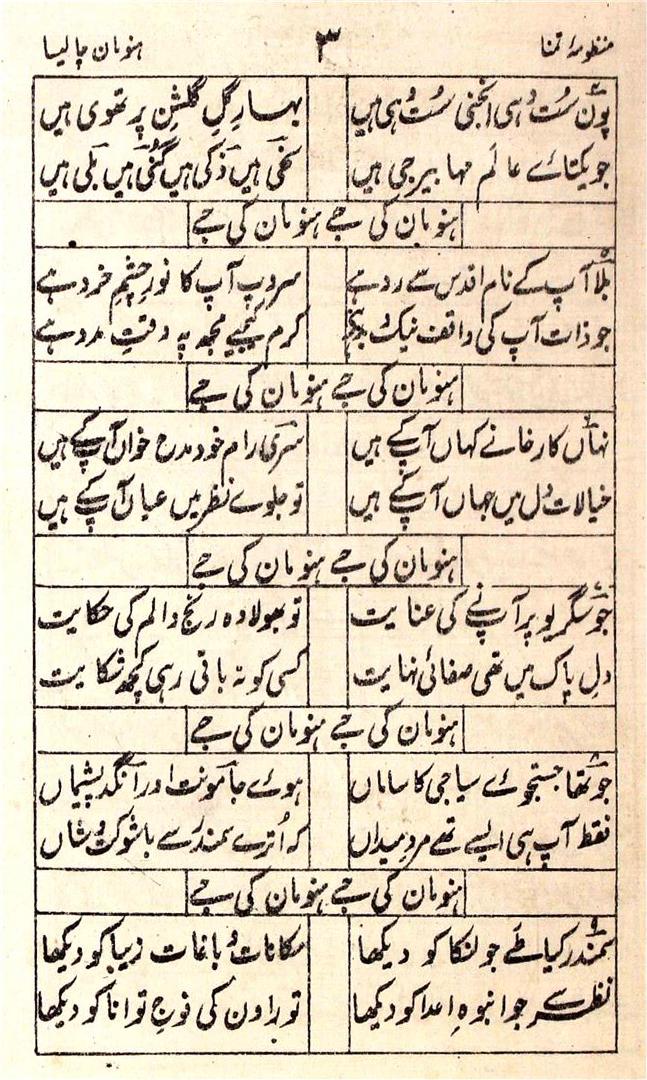 منظومہ تمنا ۳ ہنومان چالیسا
پون سُت وہی انجنی سُت وہی ہیں بہارِ گلِ گلشنِ پرتھوی ہیں
جو یکتائے عالم مہابیر جی ہیں سخی ہیں ذکی ہیں گُنی ہیں بلی ہیں
ہنومان کی جے ہنومان کی جے
بلا آپ کے نام اقدس سے رد ہے سروپ آپ کا نورِ چشمِ خرد ہے
جو ذات آپ کی واقف نیک و بد ہے کرم کیجیے مجھ پہ وقتِ مدد ہے
ہنومان کی جے ہنومان کی جے
نہاں کارخانے کہاں آپ کے ہیں سری رام خود مدح خواں آپ کے ہیں
خیالات دل میں جہاں آپ کے ہیں تو جلوے نظر میں عیاں آپ کے ہیں
ہنومان کی جے ہنومان کی جے
جو سگریو پر آپ نے کی عنایت تو بھولا وہ رنج و الم کی حکایت
دلِ پاک میں تھی صفائی نہایت کسی کو نہ باقی رہی کچھ شکایت
ہنومان کی جے ہنومان کی جے
جو تھا جستجوئے سیاجی کا ساماں ہوئے جامونت اور انگد پشیماں
فقط آپ ہی ایسے تھے مردِ میداں کہ اُترے سمندر سے با شوکت و شاں
ہنومان کی جے ہنومان کی جے
سمندر کیا طے جو لنکا کو دیکھا مکانات و باغات زیبا کو دیکھا
نظر سے جو انبوہِ اعدا کو دیکھا تو راون کی فوجِ توانا کو دیکھا